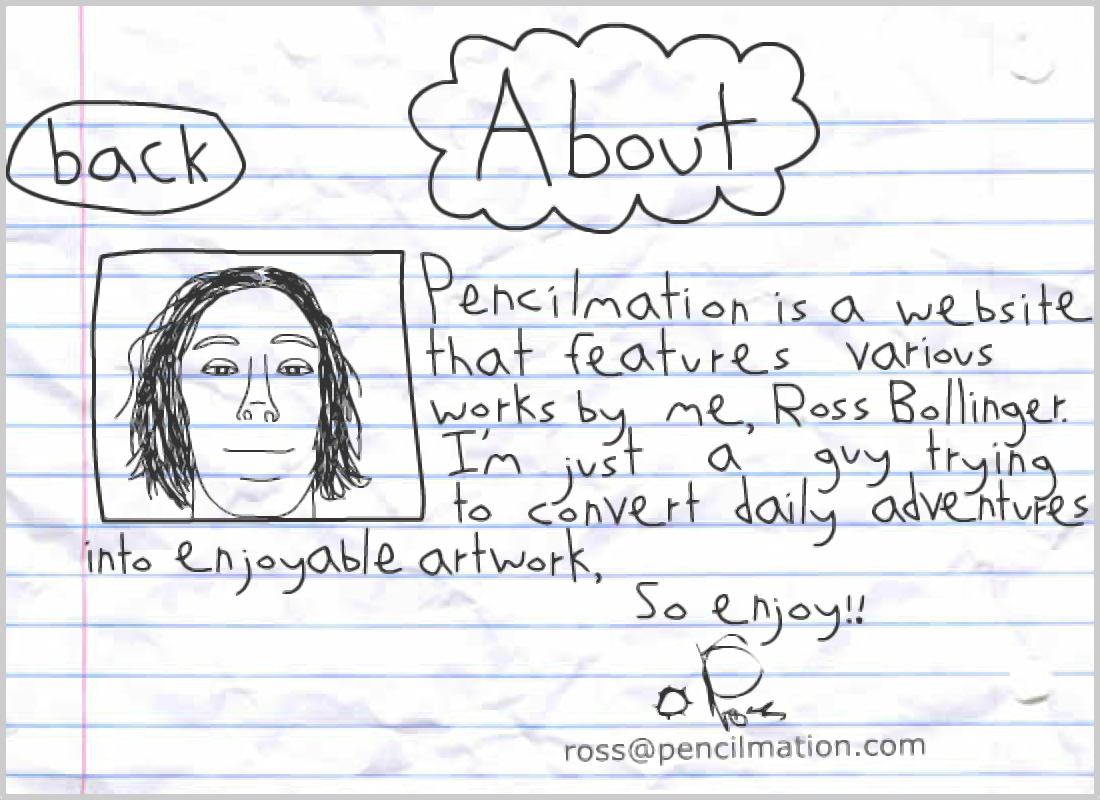 About
back
Pencilmation is a website
that features various
works by me, Ross Bollinger.
I'm just a guy trying
to convert daily adventures
into enjoyable artwork,
So enjoy!!
Ross
ross@pencilmation.com